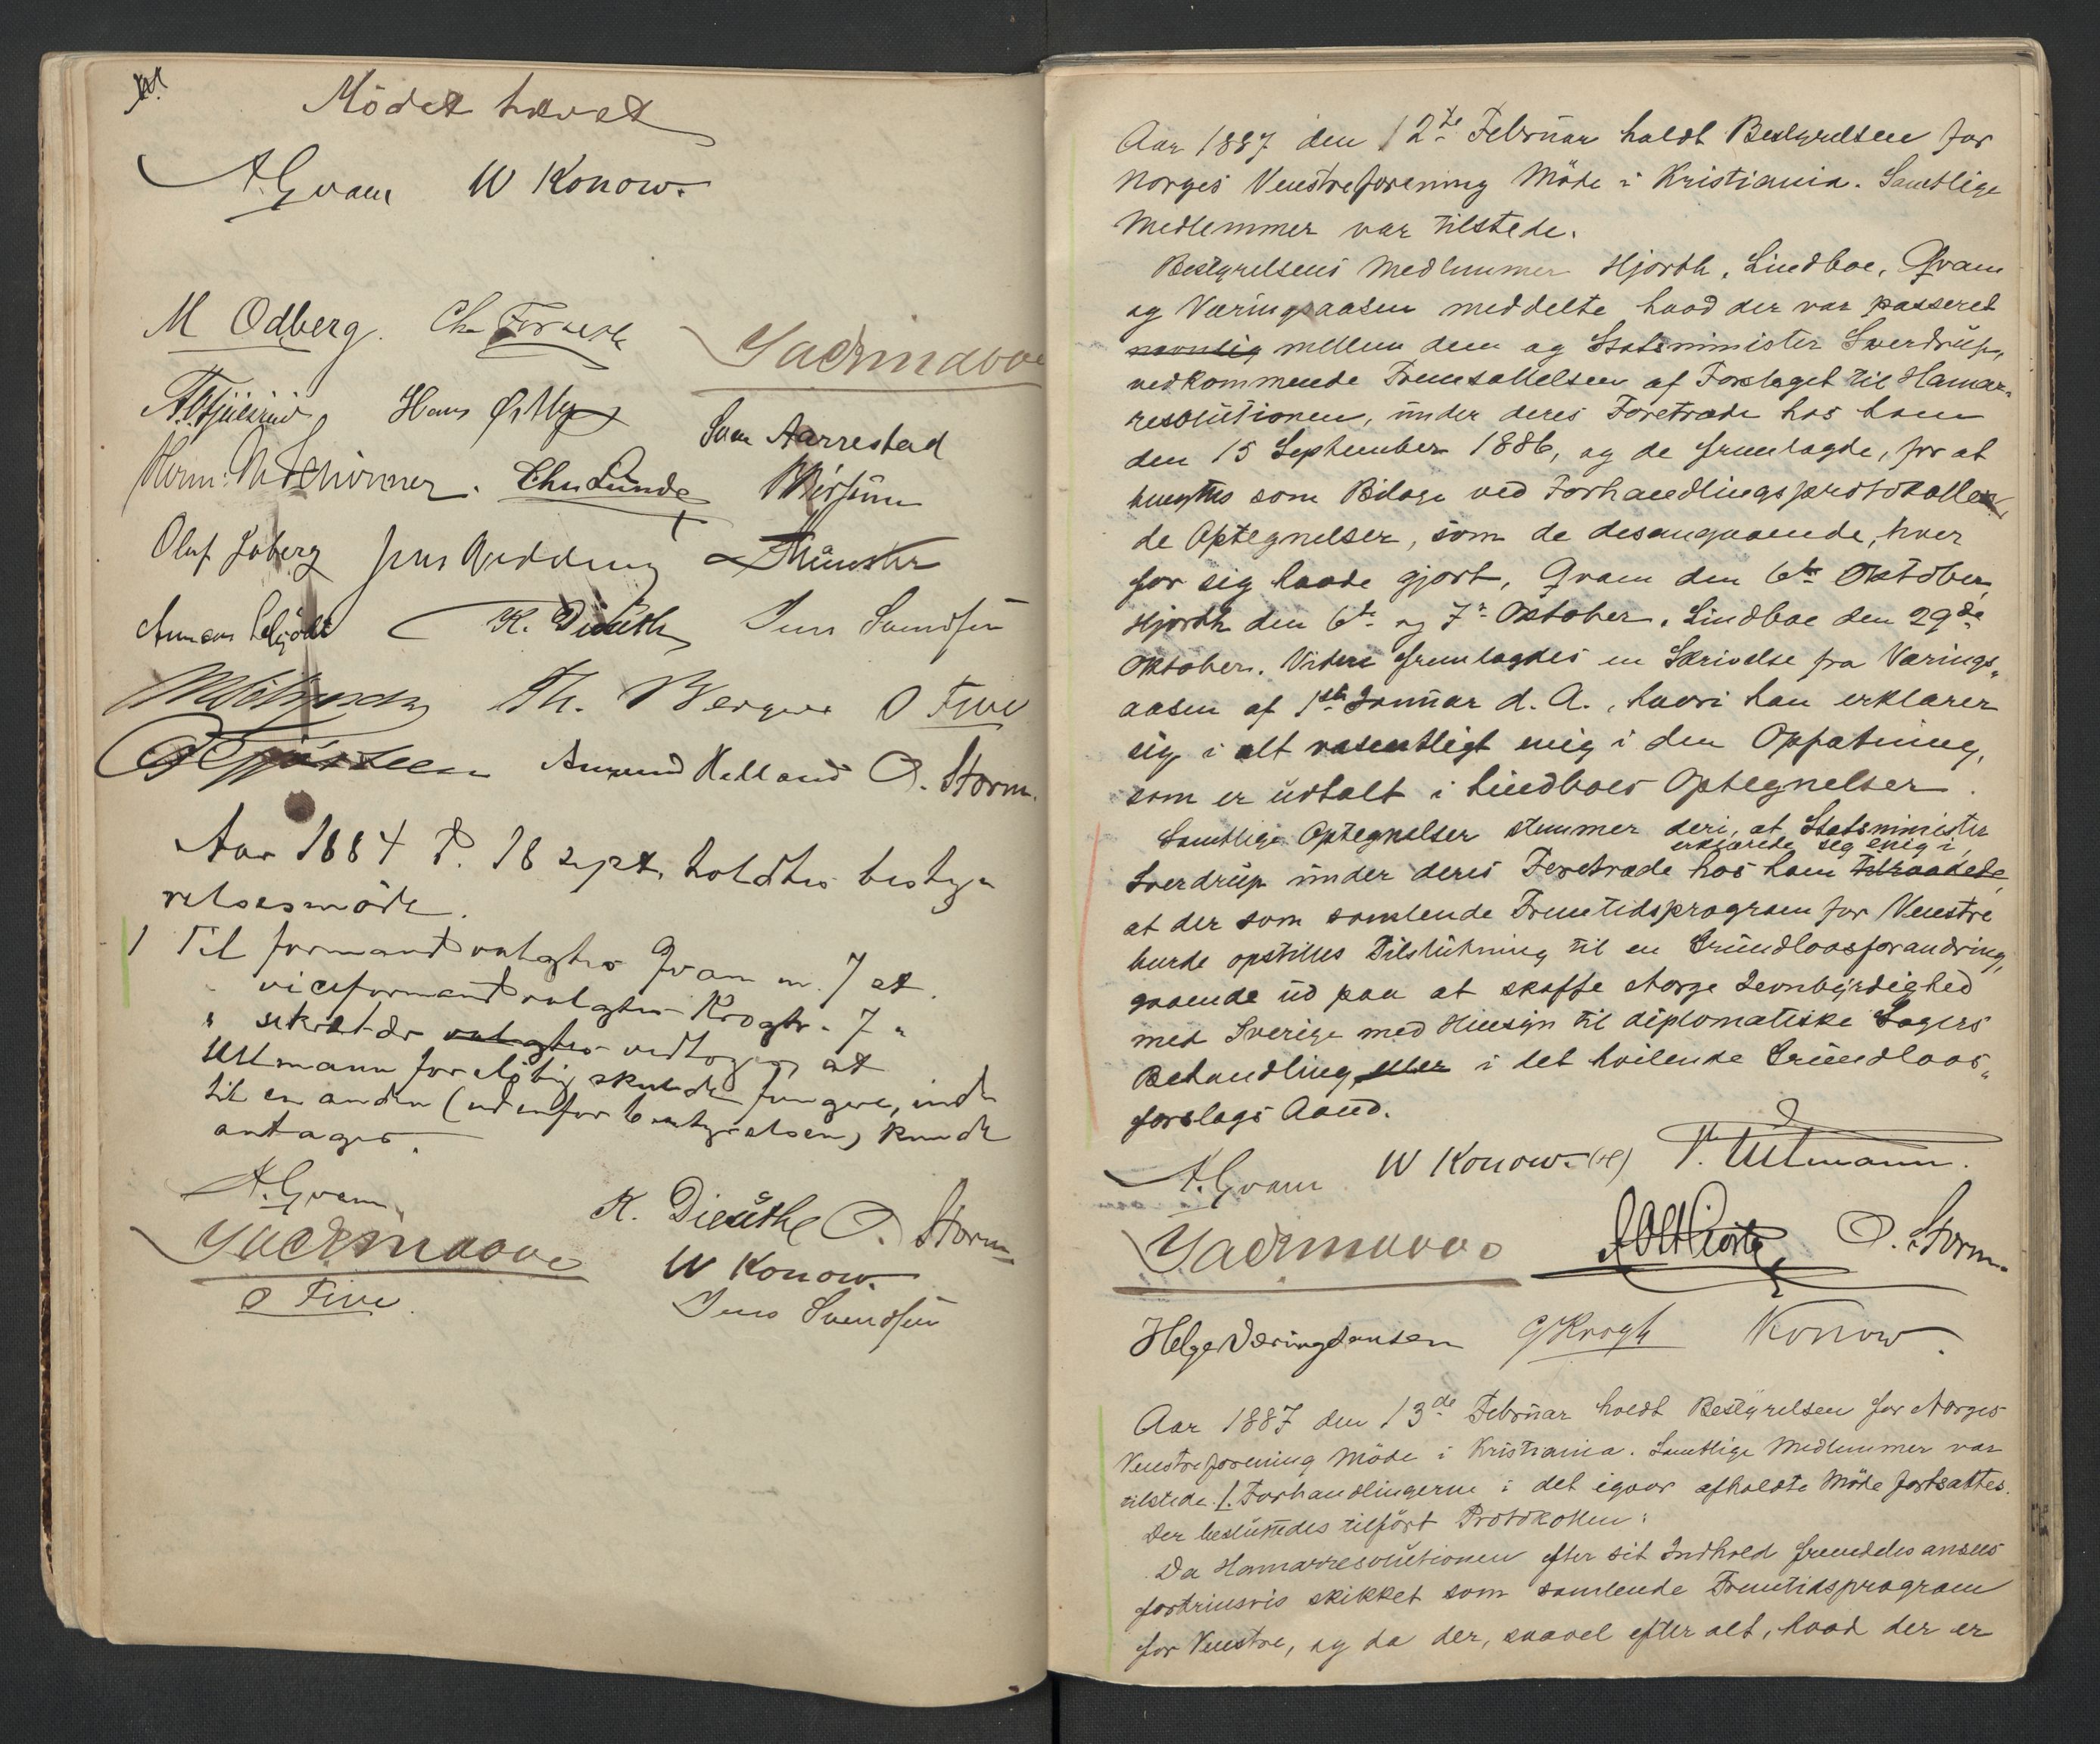 Mödet hævet
A. Qvam W Konow.
M Odberg.
Hans
Sven Aarrestad
Chr Lunde
Olaf Joberg
Münster
Jens Svendsen
Th. O Five
Amund Helland O. Storm.
Aar 1884 d. 18 sept. holdtes besty-
relsesmöde.
1 Til formand valgtes Qvam m. 7 st.
" viceformand valgtes Krogh - 7 "
" sekretær valgtes vedtoges at
Ullmann foreløbig skulde fungere, indtil
til en anden (udenfor bestyrelsen) kunde
antages.
A. Qvam
K. O. Storm
W Konow.
O Five
Jens Svendsen
Aar 1887 den 12te Februar holdt Bestyrelsen for
Norges Venstreforening Möde i Kristiania. Samtlige
Medlemmer var tilstede.
Bestyrelsens Medlemmer Hjorth, Lindboe, Qvam
og Væringsaasen meddelte hvad der var passeret
navnlig mellem dem og Statsminister Sverdrup,
vedkommende Fremsættelsen af Forslaget til Hamar-
resolutionen, under deres Foretræde hos ham
den 15 September 1886, og de fremlagde, for at
benyttes som Bilage ved Forhandlingsprotokollen,
de Optegnelser, som de desangaaende, hver
for sig havde gjort, Qvam den 6te Oktober,
Hjorth den 6te og 7de Oktober, Lindboe den 29de
Oktober. Videre fremlagdes en Skrivelse fraVærings-
aasen af 1ste Januar d. A., hvori han erklærer
sig i alt væsentligt enig i den Opfatning,
som er udtalt i Lindboes Optegnelser.
Samtlige Optegnelser stemmer deri, at Statsminister
erklærede sig enig i
Sverdrup under deres Foretræde hos ham tilraadede,
at der som samlende Fremtidsprogram for Venstre
burde opstilles Tilslutning til en Grundlovsforandring,
gaaende ud paa at skaffe Norge Jevnbyrdighed
med Sverige med Hensyn til diplomatiske Sagers
Behandling, eller i det hvilende Grundlovs-
forslags Aand.
A. Qvam W Konow. (H) V. Ullmann.
O. Storm.
Helge Væringsaasen G Krogh Konow.
Aar 1887 den 13de Februar holdt Bestyrelsen for Norges
Venstreforening Möde i Kristiania. Samtlige Medlemmer var
tilstede. 1. Forhandlingerne i det igaar afholdte Möde fortsattes.
Der besluttedes tilfört Protokollen:
Da Hamarresolutionen efter sit Indhold fremdeles ansees
fortrinsvis skikket som samlende Fremtidsprogram
for Venstre, og da der, saavel efter alt, hvad der er